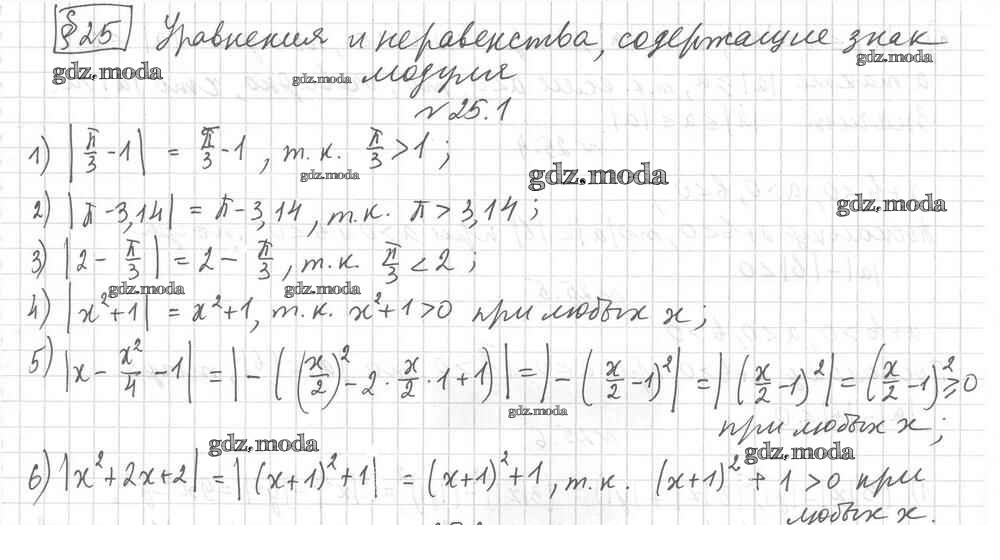 §25 Уравнения и неравенства, содержащие знак
gdz.moda gdz.moda модуля gdz.moda
№25.1
1) |π/3 - 1| = π/3 - 1, т.к. π/3 > 1;
gdz.moda gdz.moda
2) |π - 3,14| = π - 3,14, т.к. π > 3,14;
gdz.moda
3) |2 - π/3| = 2 - π/3, т.к. π/3 < 2;
gdz.moda gdz.moda
4) |x²+1| = x²+1, т.к. x²+1>0 при любых x;
5) |x - x²/4 - 1| = |-((x/2)² - 2·x/2·1+1)| = |-(x/2 - 1)²| = |(x/2 - 1)²| = (x/2 - 1)² ≥ 0
gdz.moda
при любых x;
gdz.moda gdz.moda
6) |x²+2x+2| = |(x+1)²+1| = (x+1)²+1, т.к. (x+1)²+1>0 при
любых x.